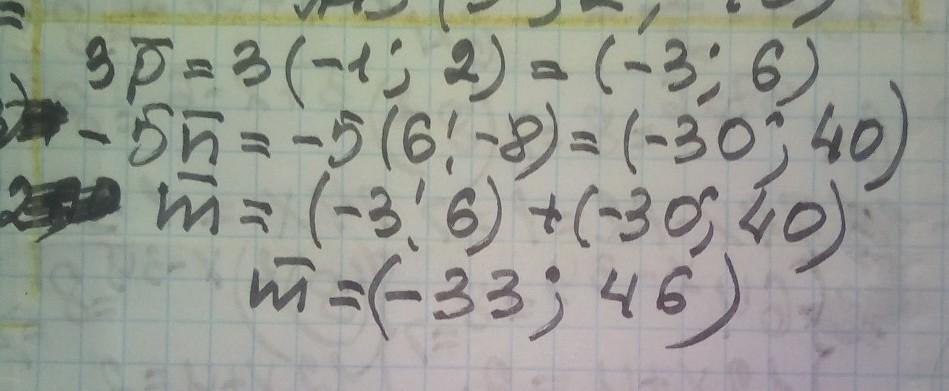 3p̅ = 3(-1; 2) = (-3; 6)
-5n̅ = -5(6; -8) = (-30; 40)
m̅ = (-3; 6) + (-30; 40)
m̅ = (-33; 46)